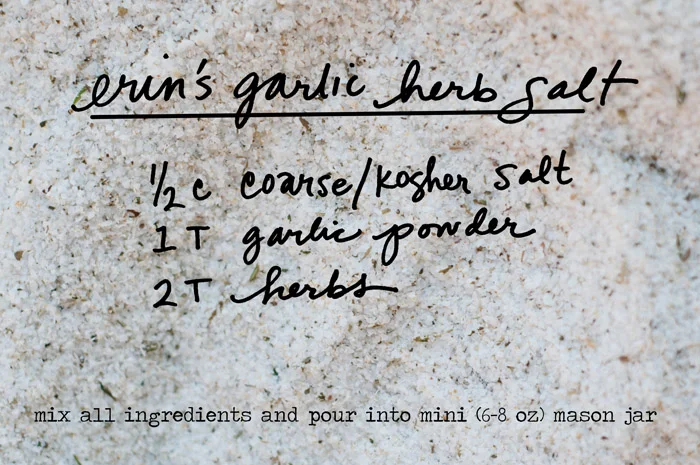 erin's garlic herb salt
1/2 c coarse/kosher salt
1 T garlic powder
2 T herbs
mix all ingredients and pour into mini (6-8 oz) mason jar